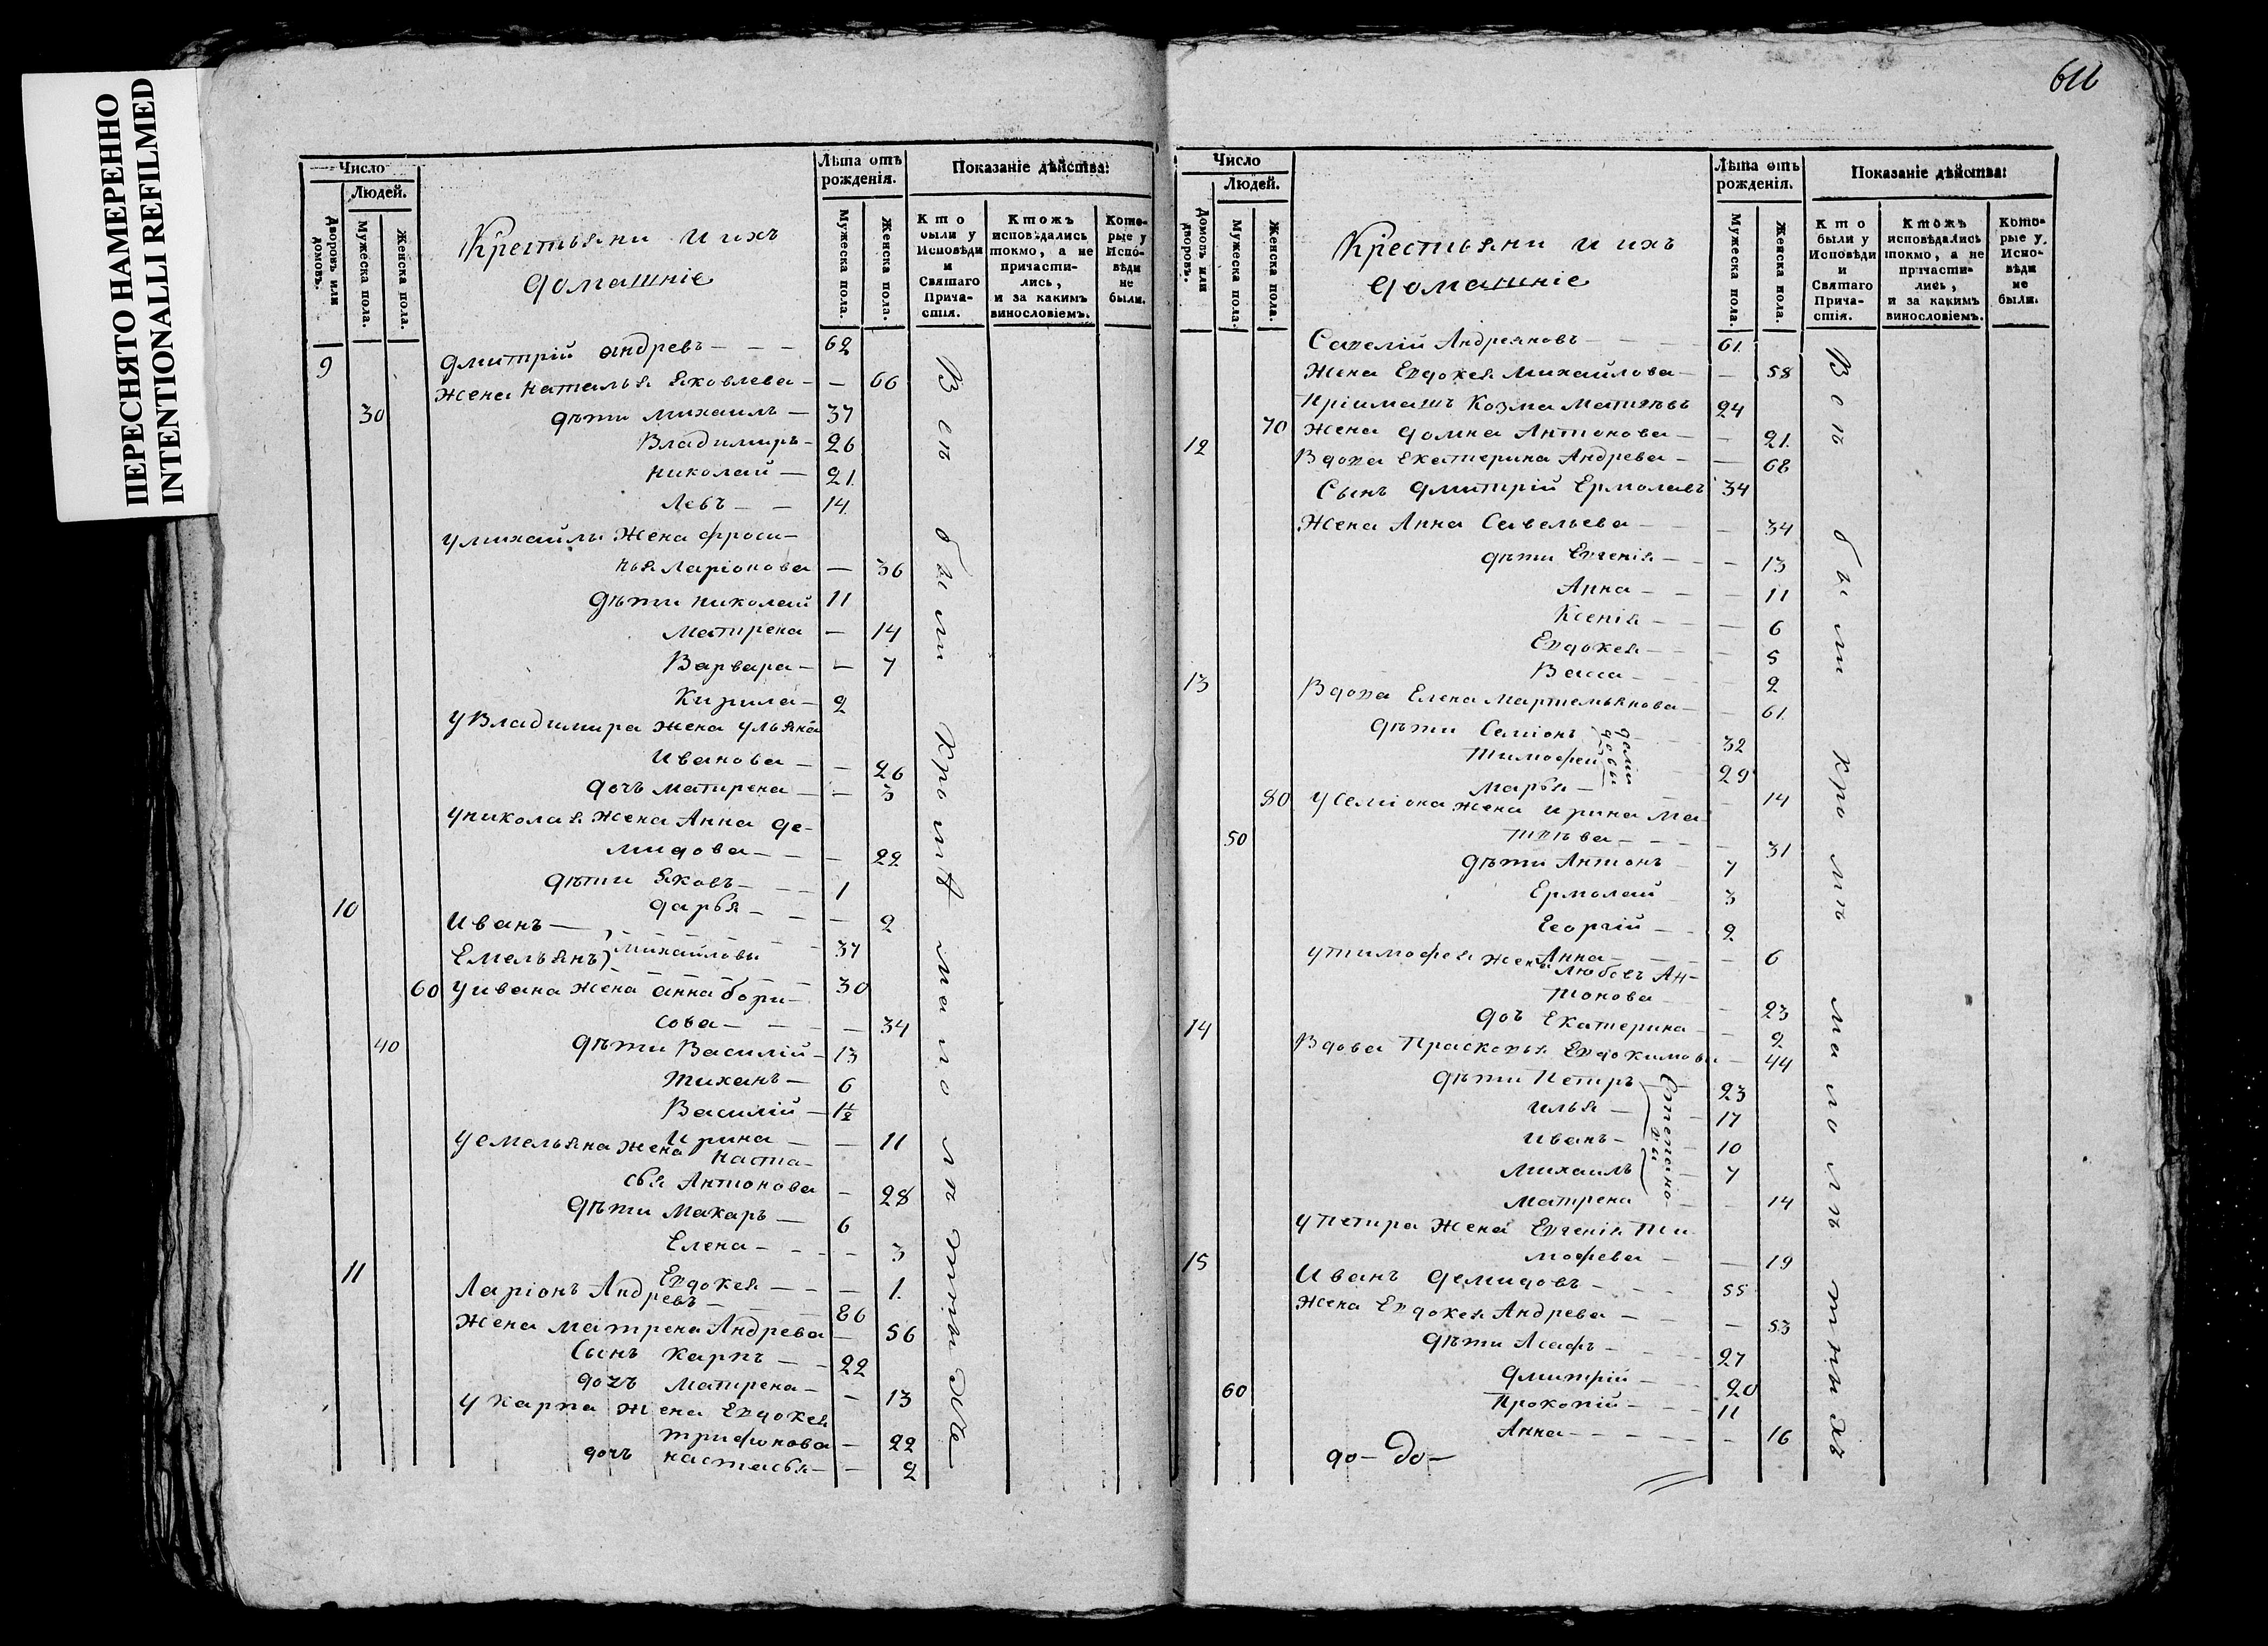 ПЕРЕСНЯТО НАМЕРЕННО
INTENTIONALLI REFILMED
Число
Людей.
Дворовъ или домовъ.
Мужеска пола.
Женска пола.
Крестьяни и ихъ
домашніе
Лѣта отъ рожденія.
Мужеска пола.
Женска пола.
Показаніе дѣйства:
Кто были у Исповѣди и Святаго Прича-стія.
Ктожъ исповѣдались токмо, а не причасти-лись, и за какимъ винословіемъ.
Кото-рые у Испо-вѣди не были.
9 Дмитрій Андревъ — — — 62
Жена Наталья Яковлева — — 66
30 дѣти Михаилъ — 37
Владимиръ — 26
Николай — 21
Левъ — — 14
У михайлы Жена фроси-
нья Ларіонова — 36
Дѣти Николай 11
Матрена — 14
Варвара — — 7
Кирила — 2
У Владимира Жена Ульяна
Иванова — — 26
дочь матрена — — 3
У николая Жена Анна Де-
мидова — — — 22
дѣти Яковъ — — — 1
дарья — — — 2
10 Иванъ —
Емельянъ) михайловы 37
60 У ивана Жена анна бори- 30
сова — — — — 34
40 Дѣти Василій — 13
Тиханъ — 6
Василій — 1/2
Ирина — — 11
У емельяна Жена Наста-
сья Антонова — 28
Дѣти Макаръ — 6
Елена — — — — 3
Евдокея — — — 1
11 Ларіонъ Андревъ — — — 86
Жена Матрена Андрева — 56
Сынъ Карпъ — — 22
дочь Матрена — — 13
У Карпа Жена Евдокея
трифонова — 22
дочь настасья — — 2
Вси были кромѣ малолѣтныхъ
611
Число
Людей.
Домовъ или дворовъ.
Мужеска пола.
Женска пола.
Крестьяни и ихъ
домашніе
Лѣта отъ рожденія.
Мужеска пола.
Женска пола.
Показаніе дѣйства:
Кто были у Исповѣди и Святаго Прича-стія.
Ктожъ исповѣдались токмо, а не причасти-лись, и за какимъ винословіемъ.
Кото-рые у Испо-вѣди не были.
Савелій Андреяновъ — — — 61
Жена Евдокея Михайлова — — 58
Пріимашъ Козма Матвѣвъ 24
70 Жена Домна Антонова — — 21
12 Вдова Екатерина Андрева — — 68
Сынъ Дмитрій Ермолавъ 34
Жена Анна Савельева — — 34
Дѣти Евгенія — — — 13
Анна — — — 11
Ксенія — — — 6
Евдокея — — — 5
Васса — — — 2
13 Вдова Елена Мартемьянова — — 61
Дѣти Семіонъ 32
Тимофей 29
Демидовы
Марья — — — 14
80 У семіона Жена Ирина Ма-
50 твѣва — — — — 31
Дѣти Антонъ — 7
Ермолай 3
Георгій — — 2
Анна — — — 6
У тимофея Жена Любовъ Ан-
тонова — 23
дочь Екатерина — — 2
14 Вдова Прасковья Евдокимова — 44
Дѣти Петръ — 23
Илья — — 17
Иванъ — 10
Михаилъ — 7
Степановы
Матрена — — 14
У Петра Жена Евгенія Ти-
мофева — — 19
15 Иванъ Демидовъ — — — 55
Жена Евдокея Андрева — — — 53
Дѣти Асафъ — — — 27
60 Дмитрій — — — 20
Прокопій — — — 11
Анна — — — — — 16
до- до-
Вси были кромѣ малолѣтныхъ